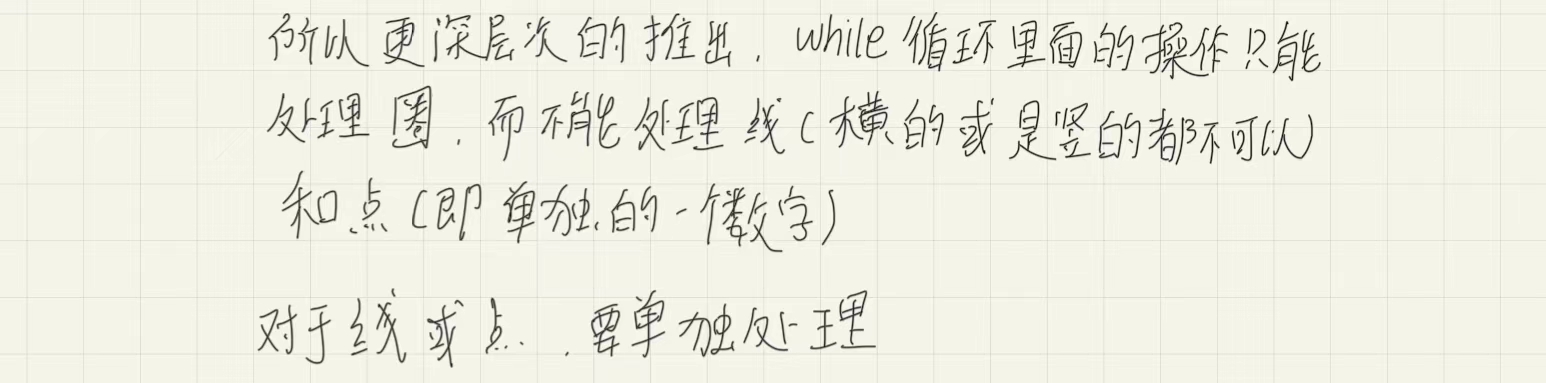 所以更深层次的推出，while循环里面的操作只能
处理圈，而不能处理线(横的或是竖的都不可以)
和点(即单独的一个数字)
对于线或点，要单独处理